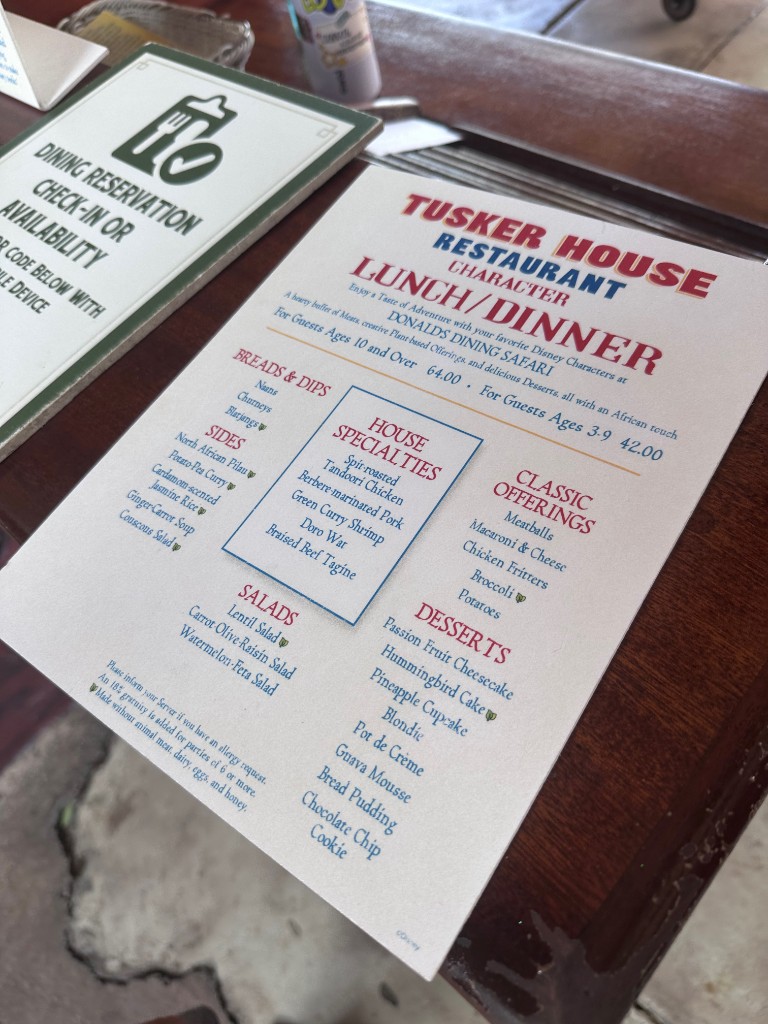 DINING RESERVATION
CHECK-IN OR
AVAILABILITY
CODE BELOW WITH
DEVICE
TUSKER HOUSE
RESTAURANT
CHARACTER
LUNCH/DINNER
Enjoy a Taste of Adventure with your favorite Disney Characters at
DONALDS DINING SAFARI
A hearty buffet of Meats, creative Plant-based Offerings, and delicious Desserts, all with an African touch
For Guests Ages 10 and Over 64.00 · For Guests Ages 3-9 42.00
BREADS & DIPS
Naans
Chutneys
Blatjangs
SIDES
North African Pilau
Potato-Pea Curry
Cardamom-scented
Jasmine Rice
Ginger-Carrot Soup
Couscous Salad
HOUSE
SPECIALTIES
Spit-roasted
Tandoori Chicken
Berbere-marinated Pork
Green Curry Shrimp
Doro Wat
Braised Beef Tagine
CLASSIC
OFFERINGS
Meatballs
Macaroni & Cheese
Chicken Fritters
Broccoli
Potatoes
SALADS
Lentil Salad
Carrot Olive-Raisin Salad
Watermelon-Feta Salad
DESSERTS
Passion Fruit Cheesecake
Hummingbird Cake
Pineapple Cupcake
Blondie
Pot de Crème
Guava Mousse
Bread Pudding
Chocolate Chip
Cookie
Please inform your Server if you have an allergy request.
An 18% gratuity is added for parties of 6 or more.
Made without animal meat, dairy, eggs, and honey.
©Disney